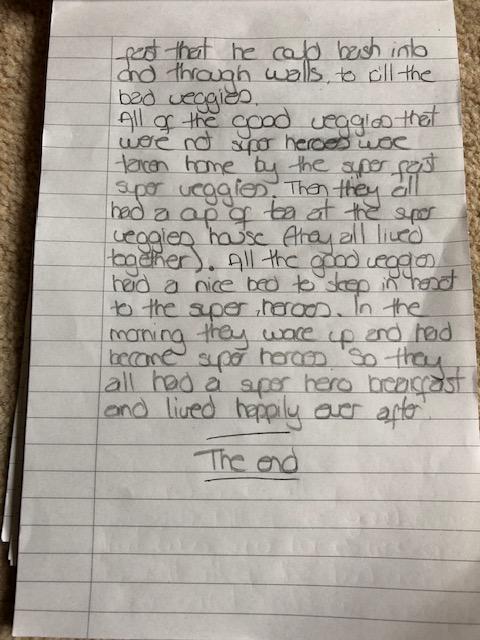 fast that he could bash into
and through walls, to cill the
bad veggies.
All of the good veggies that
were not super heroes were
tacen home by the super fast
super veggies. Then they all
had a cup of tea at the super
veggies house (they all lived
together). All the good veggies
had a nice bed to sleep in next
to the super heroes. In the
morning they woke up and had
become super heroes. So they
all had a super hero breakfast
and lived happily ever after.
The end